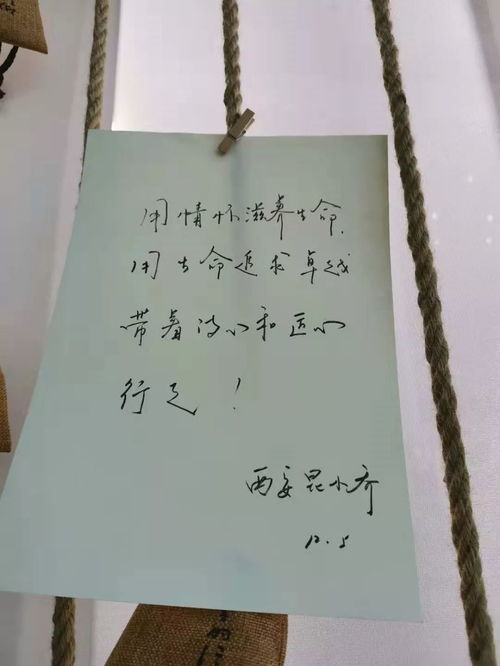 用情怀滋养生命，
用生命追求卓越
带着诗心和匠心
行走！
西安昆小乔
12.5